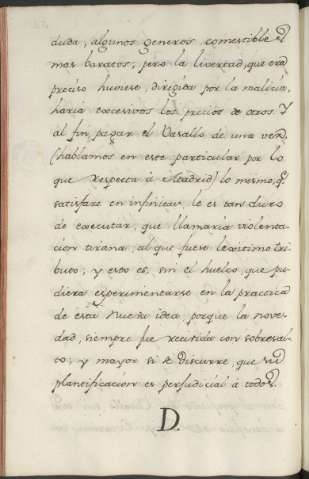 duda, algunos generos comestibles
mas baratos; pero la livertad, que era
preciso huviese, dirigida por la malicia,
haria excesivos los precios de otros. Y
al fin, pagar el Vasallo de una vez
(hablamos en este particular por lo
que respecta à Madrid) lo mesmo, q.e
satisface en infinitas, le es tan duro
de executar, que llamaria violenta
cion tirana, al que fuese lexitimo tri
buto; y esto es, sin el huelco, que pu
diera experimentarse en la practica
de esta nueva idea, porque la nove
dad, siempre fue recivida con sobresal
to, y mayor si se discurre, que su
planificacion es perjudicial à todos.
D.